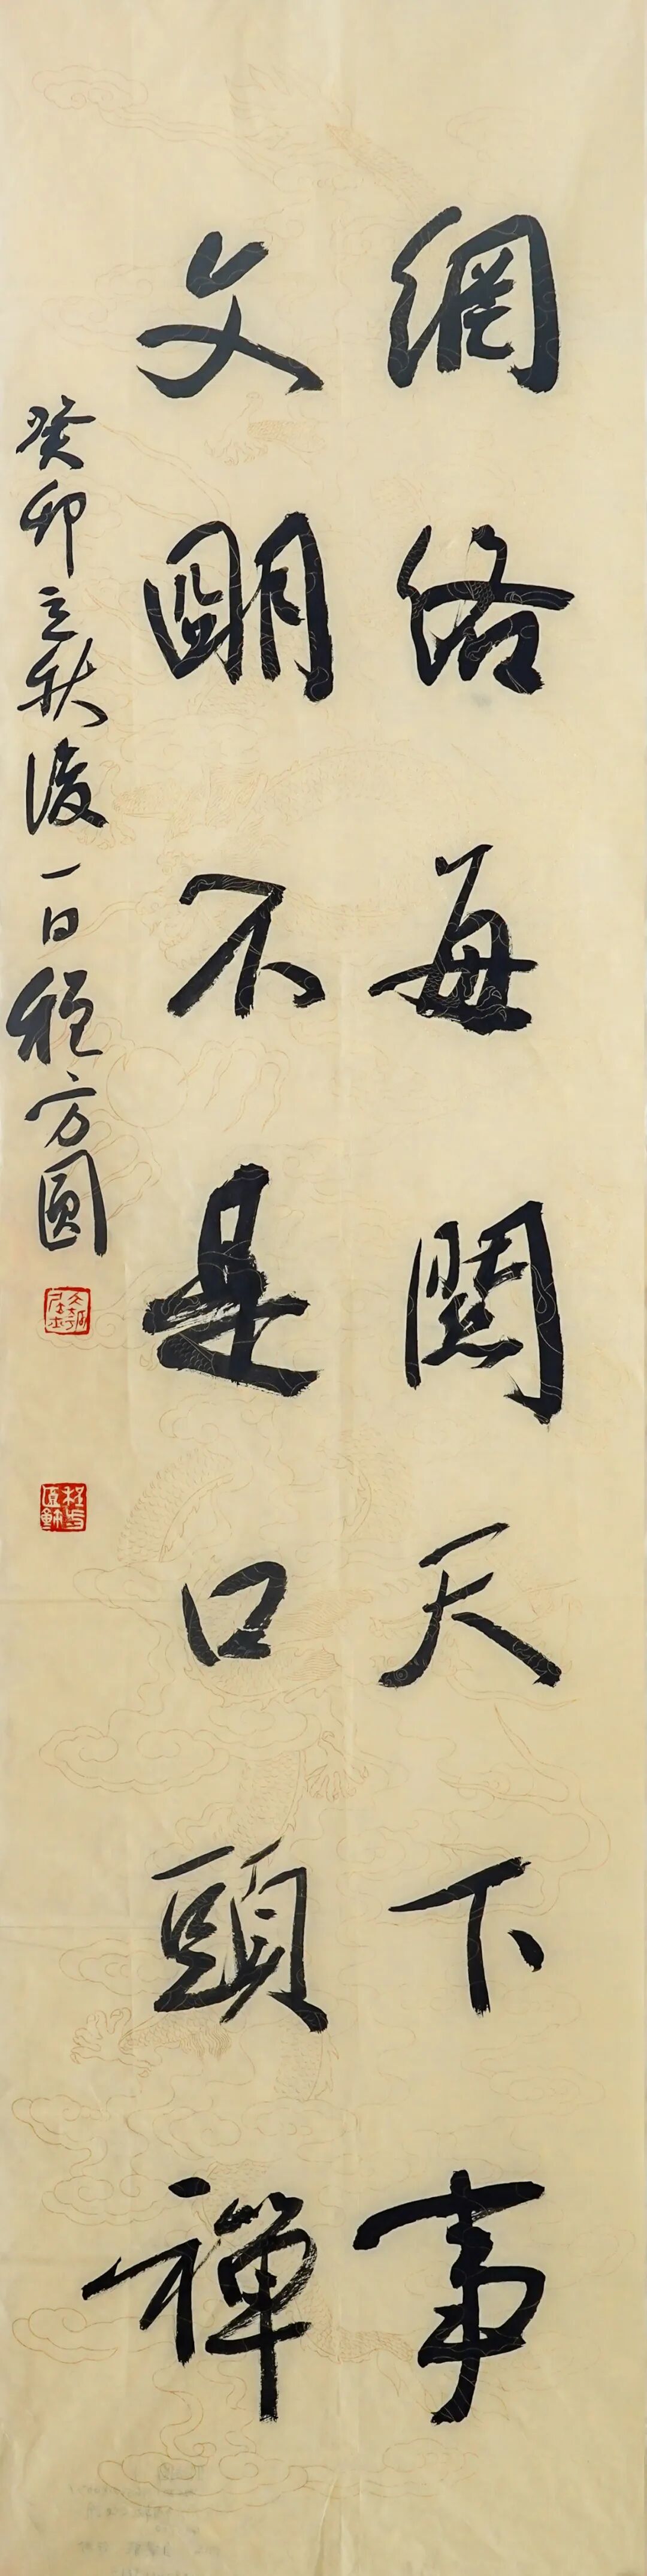 網絡每關天下事
文明不是口頭禪
癸卯立秋後一日程方圓